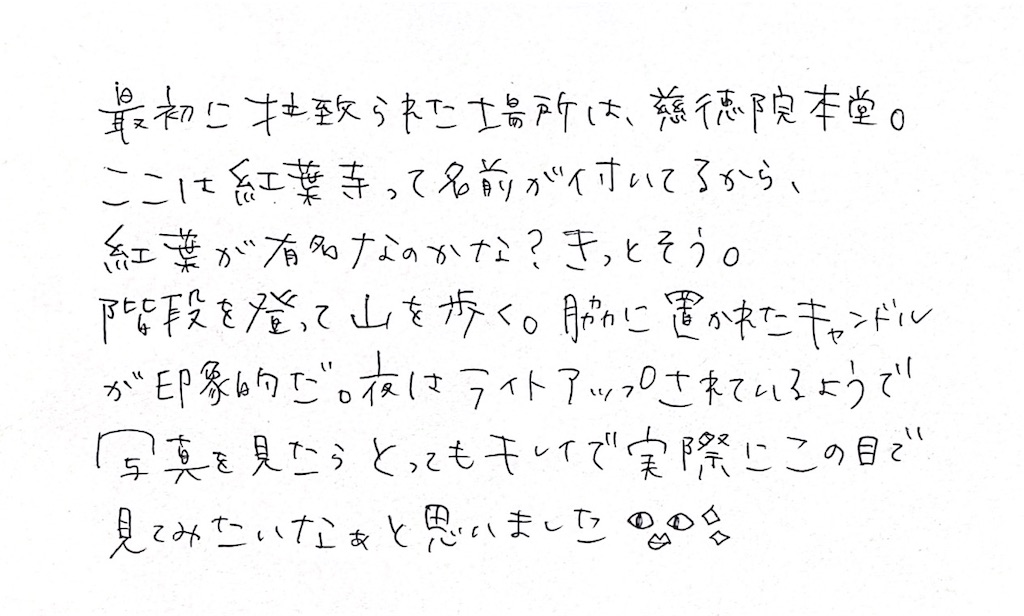 最初に拉致られた場所は、慈徳院本堂。
ここは紅葉寺って名前が付いてるから、
紅葉が有名なのかな？きっとそう。
階段を登って山を歩く。脇に置かれたキャンドル
が印象的だ。夜はライトアップされているようで
写真を見たらとってもキレイで実際にこの目で
見てみたいなぁと思いました